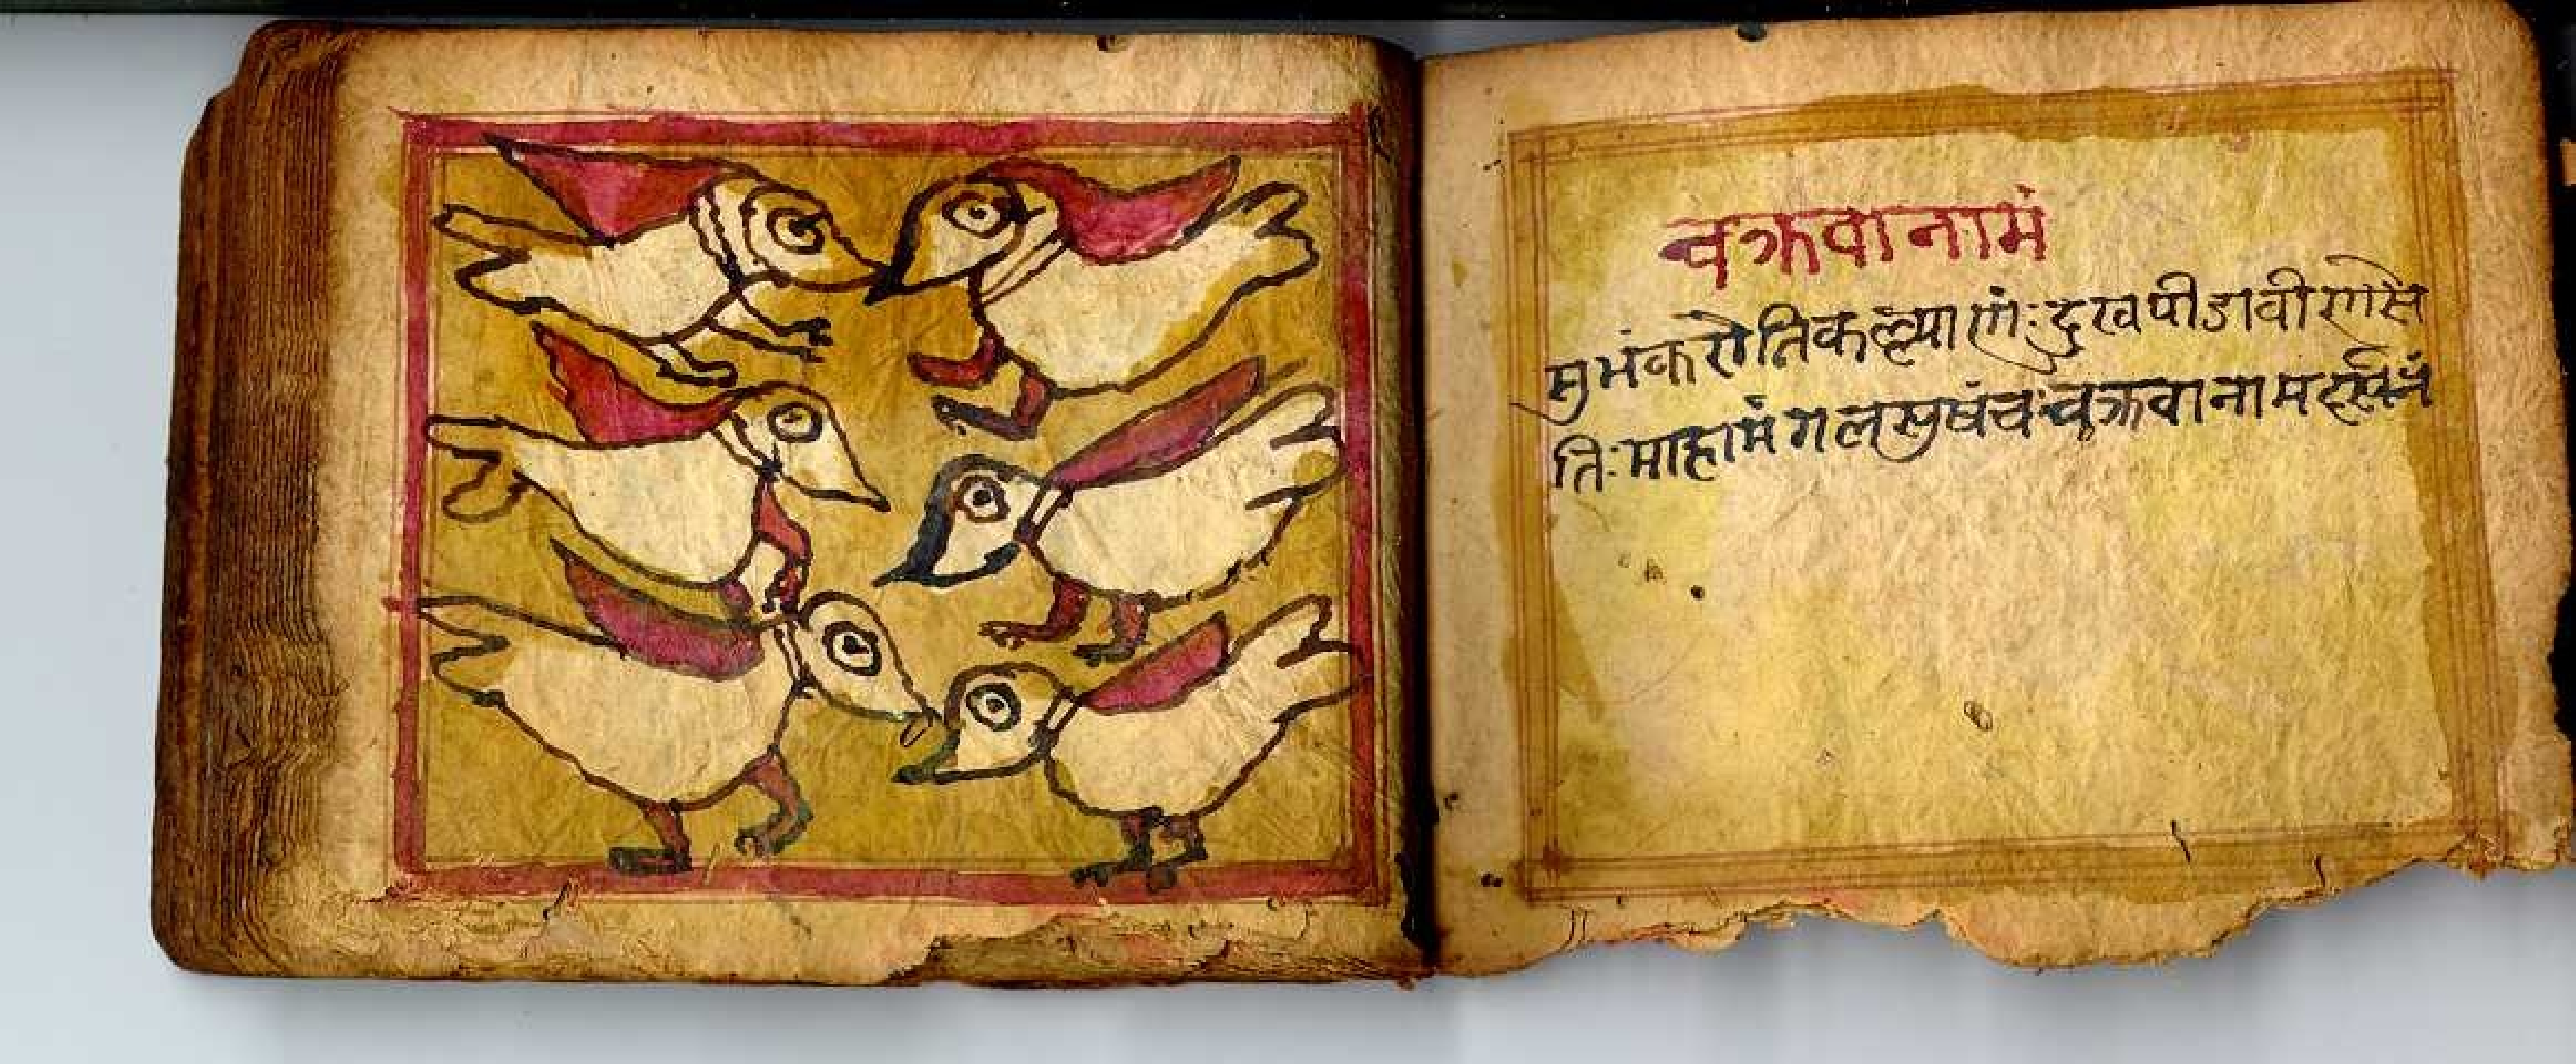 चक्रवानामं
सुभंकरोतिकल्याणं:दुखपीडावीणासे
ति:माहामंगलसुषंचःचक्रवानाम